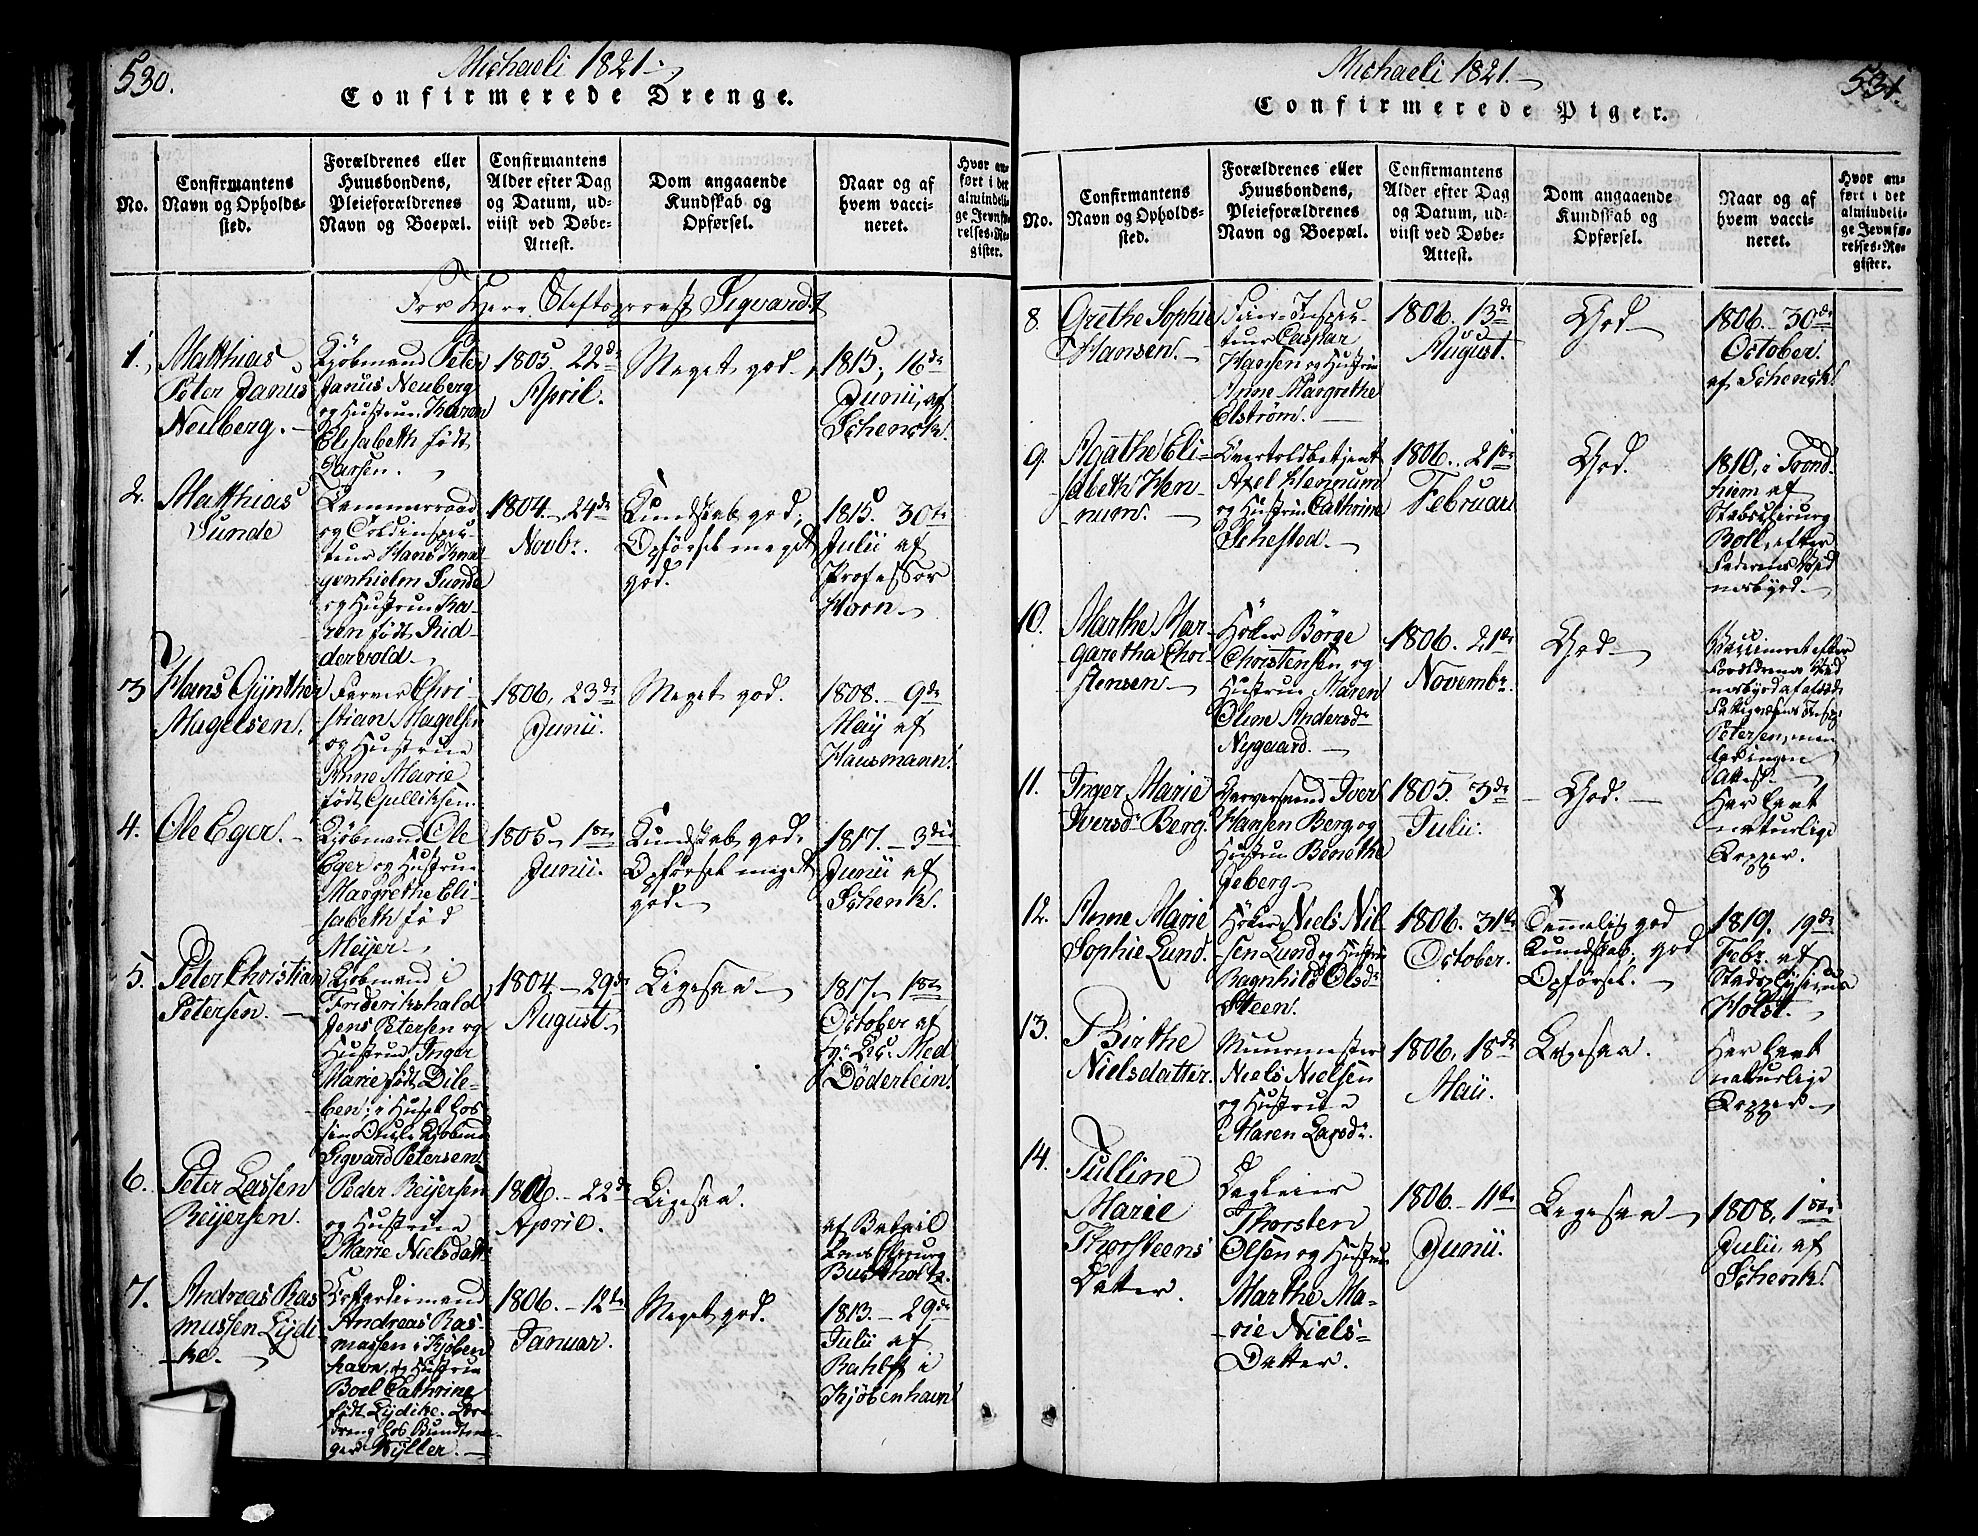 530.
Michaeli 1821.
Confirmerede Drenge.
No.
Confirmantens
Navn og Opholds-
sted.
Forældrenes eller
Huusbondens,
Pleieforældrenes
Navn og Boepæl.
Confirmantens
Alder efter Dag
og Datum, ud-
viist ved Døbe-
Attest.
Dom angaaende
Kundskab og
Opførsel.
Naar og af
hvem vacci-
neret.
Hvor an-
ført i det
almindeli-
ge Jevnfø-
relses-Re-
gister.
For Herr Stiftsprovst Sigvardt
1.
Matthias
Peter Janus
Neuberg.
Kjøbmand Peter
Janus Neuberg
og Hustrue Karen
Elisabeth født
Larsen.
1805 22de
April.
Meget god.
1815, 16de
Junii, af
Schenck.
2.
Matthias
Sunde
Kammerraad
og Toldinspec-
teur Hans
Sunde
og Hustrue Ka-
ren født Rid-
dervold
1804. 24de
Novbr.
Kundskab god,
Opførsel meget
god.
1815. 30te
Julii af
Professor
Horn
3
Hans Gynther
Magelsen.
Farver Chri-
stian Magelsen
og Hustrue
Anne Marie
født Gulliksen.
1806, 23de
Junii.
Meget god.
1808. 9de
May af
Hausmann.
4.
Ole Eger.
Kjøbmand Ole
Eger og Hustrue
Margrethe Eli-
sabeth fød
Meyer
1805 1ste
Junii.
Kundskab god,
Opførsel meget
god
1817. 3die
Junii af
Schenk.
5.
Peter Christian
Petersen.
Kjøbmand i
Friderikshald
Jens Petersen og
Hustrue Inger
Marie født Dile-
ben; i Huset hos
sin Onkle Kjøbmd
Sigvard Petersen.
1804. 29de
August
Ligesaa
1817 1ste
October af
Med
Døderlein.
6.
Peter Lassen
Reyersen.
Peder Reyersen
og Hustrue
Marie Nielsdatter
1806. 22de
April.
Ligesaa.
af Batail
lons Chirurg
Buchholtz.
7.
Andreas Ras
mussen Lydi
ke.
Andreas Ras-
mussen i Kjøben
havn og Hustrue
Boel Cathrine
født Lydike. Læ
dreng hos Bundtma
ger Kyller.
1806. 12te
Januar.
Meget god.
1813. 29de
Julii af
Rahlff i
Kjøbenhavn
Michaeli 1821.
531.
Confirmerede Piger.
No.
Confirmantens
Navn og Opholds-
sted.
Forældrenes eller
Huusbondens,
Pleieforældrenes
Navn og Boepæl.
Confirmantens
Alder efter Dag
og Datum, ud-
viist ved Døbe-
Attest.
Dom angaaende
Kundskab og
Opførsel.
Naar og af
hvem vacci-
neret.
Hvor an-
ført i det
almindeli-
ge Jevnfø-
relses-Re-
gister.
8.
Grethe Sophie
Hansen.
Inspec-
teur Caspar
Hansen og Hustrue
Anne Margrethe
Elstrøm.
1806. 13de
August.
God
1806. 30de
October.
af Schenck.
9.
Agathe Eli-
sabeth Hen-
num.
Overtoldbetjent
Axel Hennum
og Hustrue Cathrine
Schested.
1806. 21de
Februari
God.
1810, i Trond
hiem af
Stabschirurg
Boll, efter
Faderens Vid
nesbyrd
10.
Marthe Mar-
garetha Chri-
stensen
Høker Børge
Christensen og
Hustrue Maren
Oline Andersdr
Nygaard.
1806. 21de
Novembr.
God
Vaccineret efter
Forældrenes Vid
nesbyrd af afdøde
Fattigvæsens Insp.
Petersen, men
ingen
Attest.
11.
Inger Marie
Iversdr Berg.
Garversvend Iver
Hansen Berg og
Hustrue Benethe
Jeberg
1805. 3de
Julii.
God.
Har havt
naturlige
Kopper.
12.
Anne Marie
Sophie Lund.
Høker Niels Nil
sen Lund og Hustrue
Ragnhild Olsdr
Steen.
1806. 31te
October.
Temmelig god
Kundskab, god
Opførsel.
1819. 19de
Febr. af
Stadsphysicus
Holst.
13.
Birthe
Nielsdatter.
Muurmester
Niels Nielsen
og Hustrue
Maren Larsdr.
1806, 18de
Maii.
Ligesaa.
Har havt
naturlige
Kopper
14.
Tulline
Marie
Thorsteens
Datter.
Dagleier
Thorsten
Olsen og Hustrue
Marthe Ma-
rie Niels-
Datter.
1806. 11te
Junii.
Ligesaa
1808, 1ste
Julii, af
Schenk.